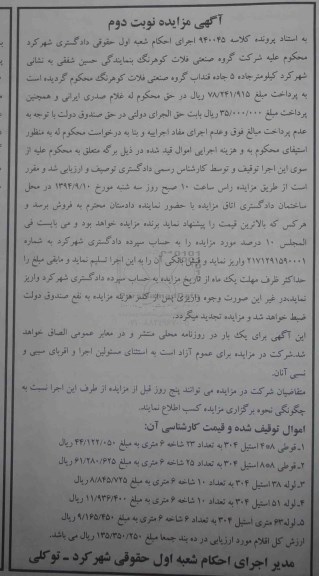 آگهی مزایده نوبت دوم
به استناد پرونده کلاسه ۹۴۰۰۴۵ اجرای احکام شعبه اول حقوقی دادگستری شهرکرد
محکوم علیه شرکت گروه صنعتی فلات کوهرنگ بنمایندگی حسین شفقی به نشانی
شهرکرد کیلومتر جاده ۵ جاده قنداب گروه صنعتی فلات کوهرنگ محکوم گردیده است
به پرداخت مبلغ ۷۸/۲۴۱/۹۱۵ ریال در حق محکوم له غلام صدری ایرانی و همچنین
پرداخت مبلغ ۳۵/۰۰۰/۰۰۰ ریال بابت حق الاجرای دولتی در حق صندوق دولت با توجه به
عدم پرداخت مبالغ فوق وعدم اجرای مفاد اجراییه و بنا به درخواست محکوم له به منظور
استیفای محکوم به و هزینه اجرایی اموال قید شده در ذیل برگه متعلق به محکوم علیه از
سوی این اجرا توقیف و توسط کارشناس رسمی دادگستری توصیف و ارزیابی شد و مقرر
است از طریق مزایده راس ساعت ۱۰ صبح روز سه شنبه مورخ ۱۳۹۴/۹/۱۰ در محل
ساختمان دادگستری اتاق مزایده با حضور نماینده دادستان محترم به فروش برسد و
هرکس که بالاترین قیمت را پیشنهاد نماید برنده مزایده خواهد بود و می بایست فی
المجلس ۱۰ درصد مورد مزایده را به حساب سپرده دادگستری شهرکرد به شماره
۲۱۷۱۲۹۱۵۹۰۰۰۱ واریز نماید و فیش بانکی آن را به این اجرا تسلیم نماید و مابقی مبلغ را
حداکثر ظرف مهلت یک ماه از تاریخ مزایده به حساب سپرده دادگستری شهرکرد واریز
نماید،در غیر این صورت وجوه واریزی پس از کسر هزینه مزایده به نفع صندوق دولت
ضبط خواهد شد و مزایده تجدید میگردد.
این آگهی برای یک بار در روزنامه محلی منتشر و در معابر عمومی الصاق خواهد
شد.شرکت در مزایده برای عموم آزاد است به استثنای مسئولین اجرا و اقربای سببی و
نسبی آنان.
متقاضیان شرکت در مزایده می توانند پنج روز قبل از مزایده از طرف این اجرا نسبت به
چگونگی نحوه برگزاری مزایده کسب اطلاع نمایند.
اموال توقیف شده و قیمت کارشناسی آن:
۱ـ قوطی ۸*۴ استیل ۳۰۴ به تعداد ۲۳ شاخه ۶ متری به مبلغ ۴۴/۱۲۲/۰۵۰ ریال
۲ـ قوطی ۸*۸ استیل ۳۰۴ به تعداد ۲۵ شاخه ۶ متری به مبلغ ۶۱/۲۸۰/۶۲۵ ریال
۳ـ لوله ۳۸ استیل ۳۰۴ به تعداد ۱۰ شاخه ۶ متری به مبلغ ۸/۸۴۵/۷۲۵ ریال
۴ـ لوله ۵۱ استیل ۳۰۴ به تعداد ۱۰ شاخه ۶ متری به مبلغ ۱۱/۹۳۶/۴۰۰ ریال
۵ـ لوله۶۳ متری استیل ۳۰۴ به تعداد ۶ شاخه ۶ متری به مبلغ ۹/۱۶۵/۴۵۰ ریال
ارزش کل اقلام مورد ارزیابی در ده بند جمعا مبلغ ۱۳۵/۳۵۰/۲۵۰ ریال می باشد.
مدیر اجرای احکام شعبه اول حقوقی شهرکرد ـ توکلی